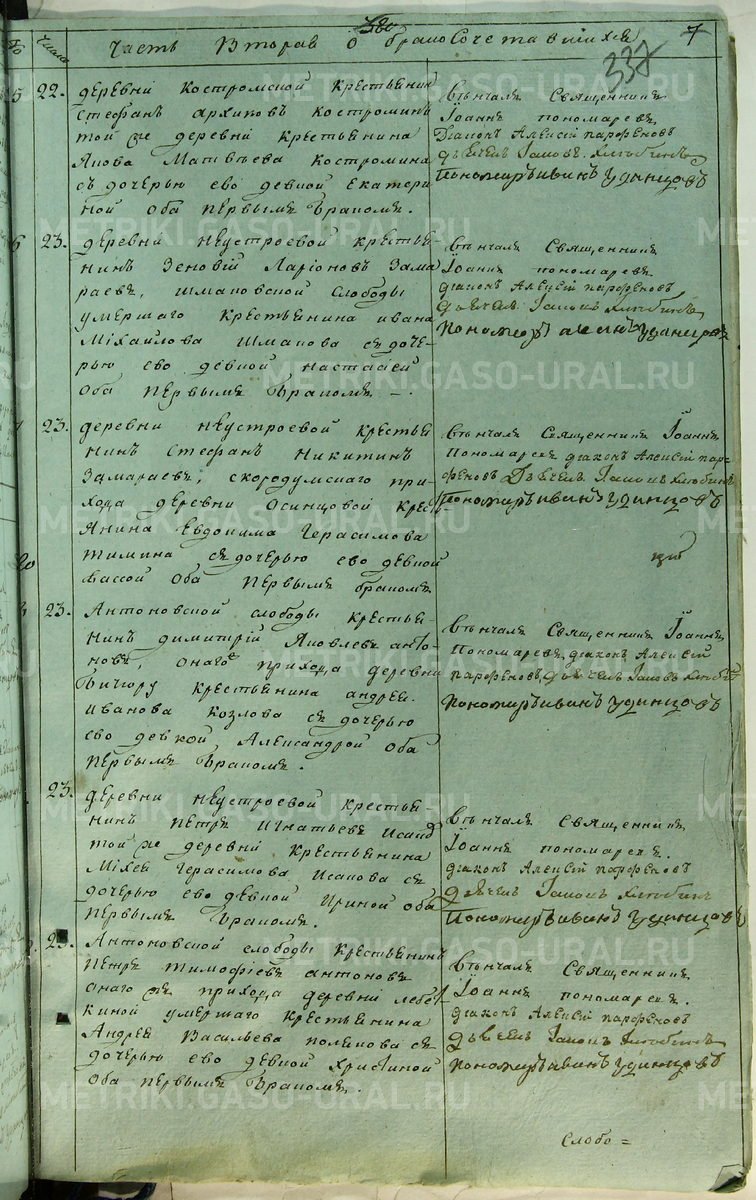 Число
Часть Вторая о бракосочетавшихся
7
337
5 22. деревни Костромской крестьянин
Стефанъ Архиповъ Костроминъ
той же деревни крестьянина
Якова Матвѣева Костромина
съ дочерью ево девкой Екатери
ной оба первымъ бракомъ.
Вѣнчалъ Священникъ
Іоаннъ Пономаревъ,
Діаконъ Алексій Парфеновъ
дьячекъ Іаковъ
Пономарь Иванъ Удинцовъ
6 23. деревни Неустроевой крестья
нинъ Зеновій Ларіоновъ Зама
раевъ, Шмаковской слободы
умершаго крестьянина Ивана
Міхайлова Шмакова съ доче-
рью ево девкой Настасіей
оба первымъ бракомъ.
Вѣнчалъ Священникъ
Іоаннъ Пономаревъ
діаконъ Алексій Парфеновъ
дьячекъ Іаковъ
Пономарь Удинцовъ
7 23. деревни Неустроевой крестья
нинъ Стефанъ Никитинъ
Замараевъ, Скородумскаго при-
хода деревни Осинцовой крест
янина Евдокима Герасимова
Тимина съ дочерью ево девкой
Вассой оба первымъ бракомъ
Вѣнчалъ Священникъ Іоаннъ
Пономаревъ діаконъ Алексій Пар-
феновъ дьячекъ Іаковъ
Пономарь Иванъ Удинцовъ
8 23. Антоновской слободы крестья-
нинъ Димитрій Яковлевъ Анто-
новъ, онаго прихода деревни
Бичюру крестьянина Андрея
Иванова Козлова съ дочерью
ево девкой Александрой оба
первымъ бракомъ.
Вѣнчалъ Священникъ Іоаннъ
Пономаревъ, діаконъ Алексій
Парфеновъ, дьячекъ Іаковъ
Пономарь Иванъ Удинцовъ
23. деревни Неустроевой крестья-
нинъ Петръ Игнатьевъ Исаков
той же деревни крестьянина
Міхея Герасимова Исакова съ
дочерью ево девкой Ириной оба
первымъ бракомъ.
Вѣнчалъ Священникъ
Іоаннъ Пономаревъ.
діаконъ Алексій Парфеновъ
дьячекъ Іаковъ
Пономарь Иванъ Удинцовъ
23. Антоновской слободы крестьянинъ
Петръ Тимофѣевъ Антоновъ
онаго же прихода деревни Лебед
киной умершаго крестьянина
Андрея Васильева Полякова съ
дочерью ево девкой Христиной
оба первымъ бракомъ.
Вѣнчалъ Священникъ
Іоаннъ Пономаревъ.
діаконъ Алексій Парфеновъ
дьячекъ Іаковъ
Пономарь Иванъ Удинцовъ
Слобо=
METRIKI.GASO-URAL.RU